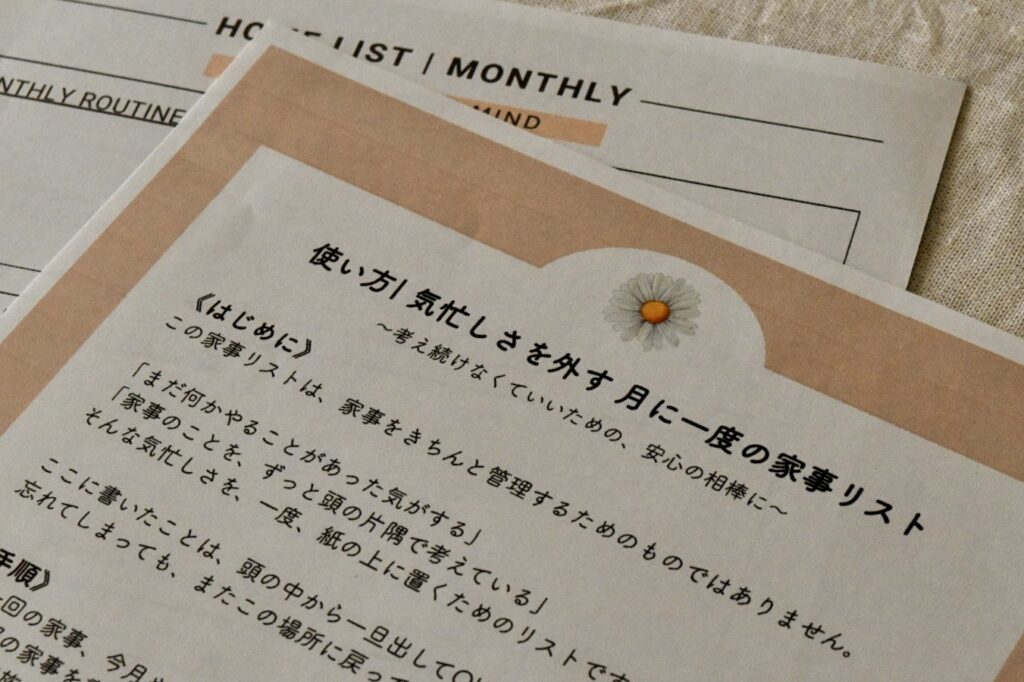 LIST | MONTHLY
NTHLY ROUTINE
MIND
使い方| 気忙しさを外す 月に一度の家事リスト
~考え続けなくていいための、安心の相棒に~
《はじめに》
この家事リストは、家事をきちんと管理するためのものではありません。
「まだ何かやることがあった気がする」
「家事のことを、ずっと頭の片隅で考えている」
そんな気忙しさを、一度、紙の上に置くためのリストです
ここに書いたことは、頭の中から一旦出してO
忘れてしまっても、またこの場所に戻って
手順》
回の家事、今月
の家事を